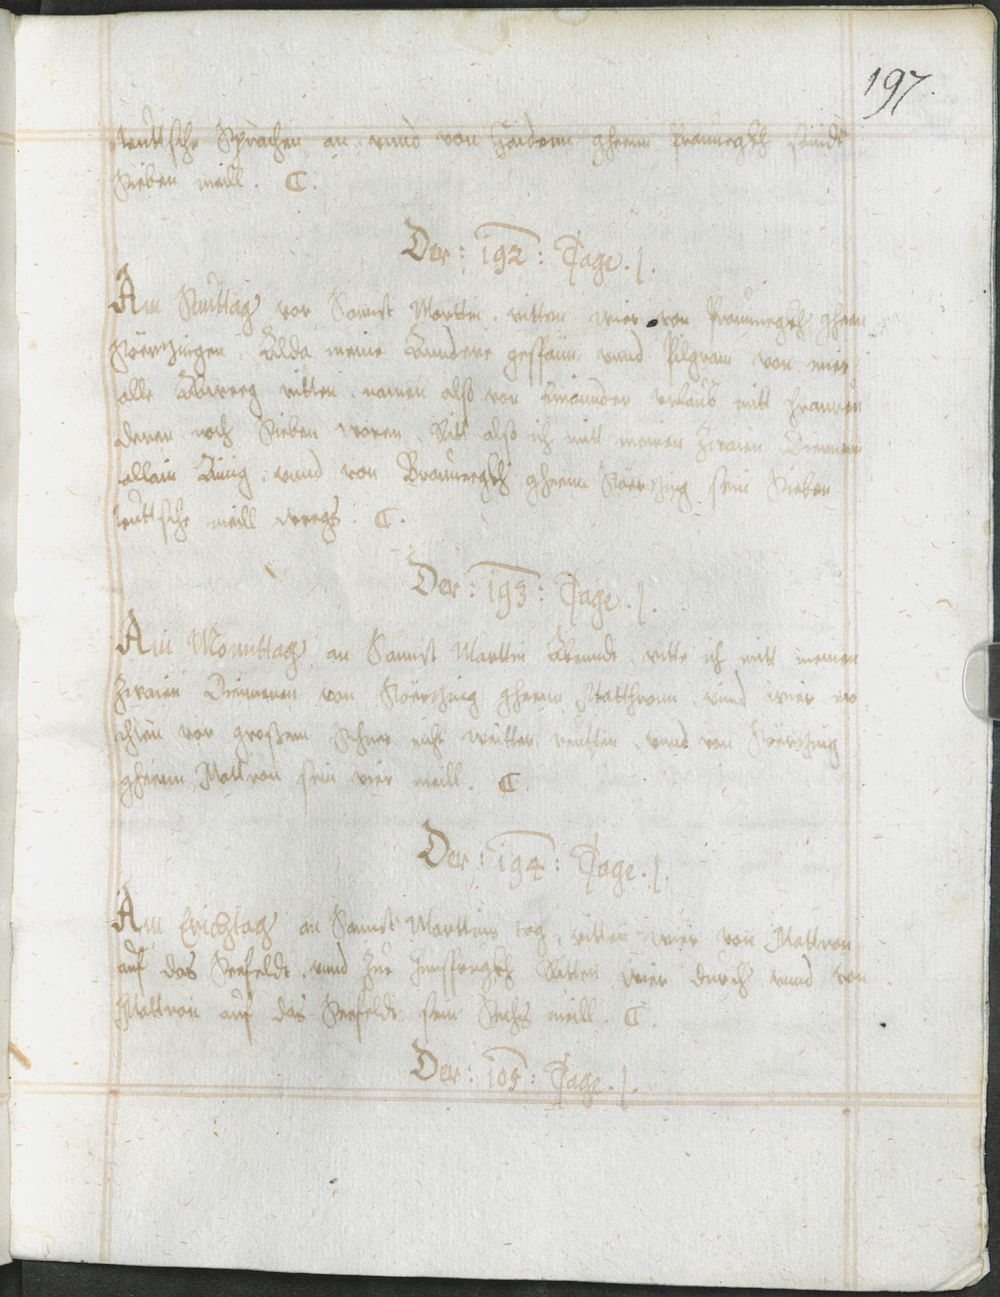 197.
teuttsche Sprachen an. vnnd von gheenn Praunegkh seindt
Sieben meill. C.
Der: 192: Tage. /.
Am Sontag vor Sannct Marttin. ritten wier von Praunegkh gheen
Stoerzingen. Allda meine Anndere gesellen vnnd Pilgram von mier
alle Abweeg ritten. namen also von einannder vrlaub mitt
deren noch Sieben waren. Ritt also ich mitt meinen Zwaien Diennern
allain vnnd von Braunegkh gheenn Stoerzing sein Sieben
teuttsche meill weegs. C.
Der: 193: Tage. /.
Am Monnttag an Sannct Marttin Abennde. ritte ich mitt meinen
Zwaien Diennern von Stoerzing gheenn Matthronn. vnnd wier
vor grossem Schnee nicht weitter reutten. vnnd von Stoerzing
gheenn Mattron sein vier meill. C.
Der: 194: Tage. /.
Am Erichtag an Sannct Marttins tag. ritten wier von Mattron
auf das Seefeldt. vnnd Zue Ritten wier durch vnnd von
Mattron auf das Seefeldt sein Sechs meill. C.
Der: 195: Tage. /.